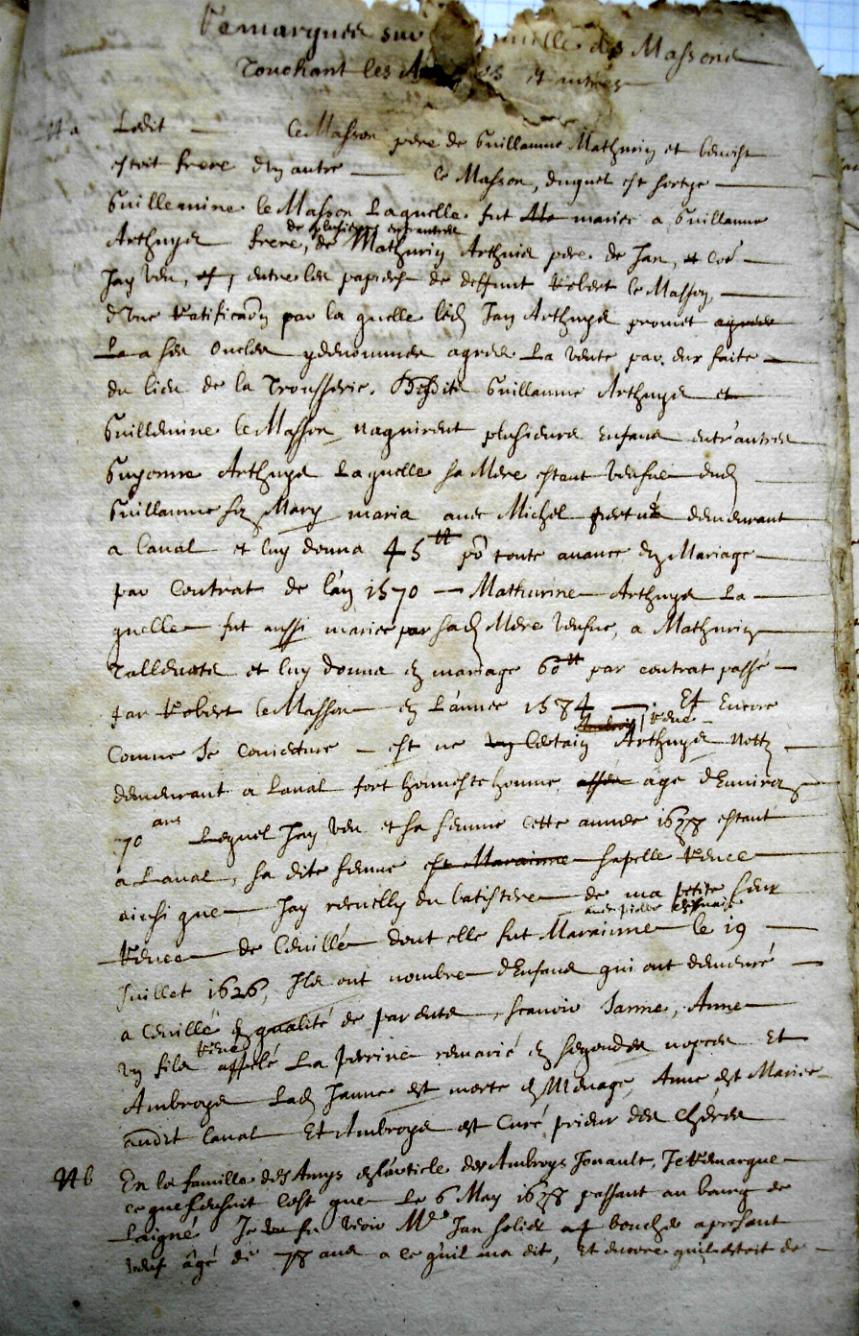 Remarques sur famille des Massons
Touchant les et autres
Na Ledit — le Masson pere de Guillaume Mathurin et benoist
estoit frere d'un autre — le Masson, duquel est sortye —
Guillemine le Masson Laquelle fut mariee a Guillaume
de plusieurs
Arthuys frere, de Mathurin Arthuis pere de Jan, et
Jay veu, entre les papiers de deffunt Robert le Masson, —
d'une Ratification par la quelle led Jan Arthuys promet agréer
La a ses Oncles y denommes agreer La vente par eux faite —
du lieu de la Trousserie. Guillaume Arthuys et
Guillemine le Masson naquirent plusieurs Enfans entr'autres
Suzanne Arthuys Laquelle sa Mere estant veufue dud
Guillaume so Mary maria avec Michel demeurant
a Laval et luy donna 45tt po toute avance en Mariage —
par Contrat de l'an 1570 — Mathurine Arthuys La —
quelle fut aussi mariee par sad Mere veufue, a Mathurin
et luy donna en mariage 60tt par contrat passé —
par Robert le Masson en L'annee 1584 — Et Encore
René
Comme Je coniecture — est ne un Certain Arthuys Nott
demeurant a Laval fort honneste homme, age d'Environ
70 ans Lequel Jay veu et sa femme cette annee 1678 estant
a Laval, sa dite femme est Marainne sapelle Renee
ainsi que Jay recueilly du batistere de ma petite seur
avec pierre
Renee de Cevillé dont elle fut Marainne le 19 —
Juillet 1626, Ils ont nombre d'Enfans qui ont demeuré —
a Cevillé en qualité de parents, scavoir Janne, Anne
René
un fils appelé La Perrine remarié en segondes nopces Et
Ambroys Lad Janne est morte en Ménage, Anne est Mariee
audit Laval Et Ambroys est Curé prieur des
Nb En la famille des Amys en l'article des Ambroys Jouault, Je Remarque
ce que s'ensuit C'est que Le 6 May 1678 passant au bourg de
Laigné Je fu voir Mre Jan a presant
veuf âgé de 78 ans a ce qu'il ma dit, Et encore qu'il estoit de —